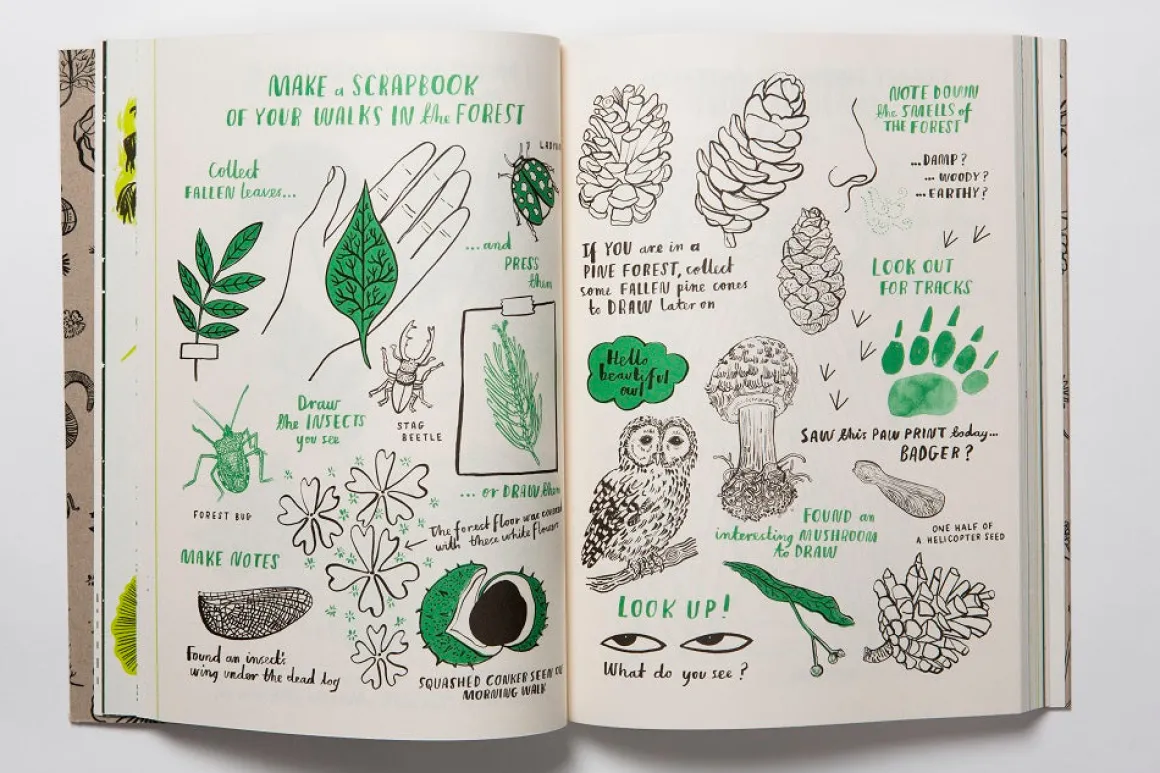 MAKE a SCRAPBOOK
OF YOUR WALKS IN the FOREST
Collect
FALLEN leaves...
...and
PRESS
them
STAG
BEETLE
Draw
the INSECTS
you see
FOREST BUG
...or DRAW them
The forest floor was covered
with these white flowers
MAKE NOTES
Found an insect's
wing under the dead log
SQUASHED CONKER SEEN ON
MORNING WALK
NOTE DOWN
the SMELLS of
THE FOREST
...DAMP?
...WOODY?
...EARTHY?
IF YOU are in a
PINE FOREST, collect
some FALLEN pine cones
to DRAW later on
LOOK OUT
FOR TRACKS
Hello
beautiful
owl
SAW this PAW PRINT today...
BADGER?
FOUND an
interesting MUSHROOM
to DRAW
ONE HALF OF
A HELICOPTER SEED
LOOK UP!
What do you see?